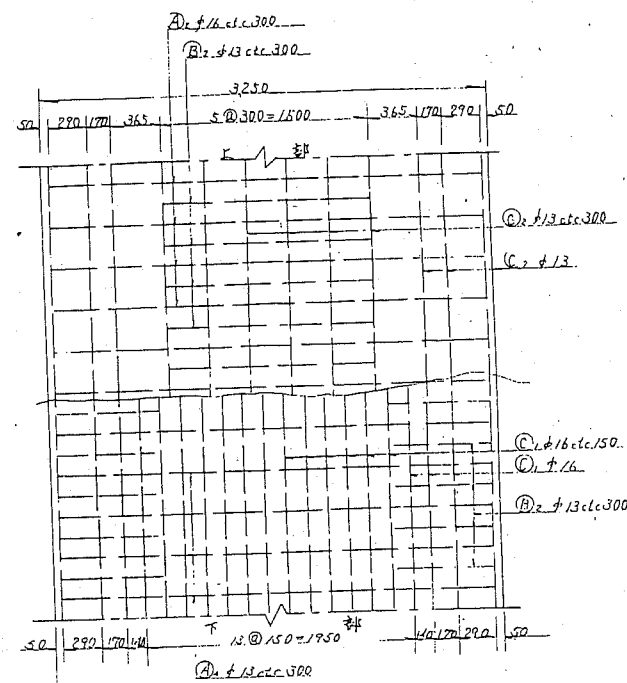 Ⓐ₁ φ16 ctc 300
Ⓑ₂ φ13 ctc 300
3,250
50 290 170 365 5@300=1500 365 170 290 50
上 部
Ⓒ₂ φ13 ctc 300
Ⓒ₂ φ13
Ⓒ₁ φ16 ctc 150
Ⓒ₁ φ16
Ⓑ₂ φ13 ctc 300
下 部
50 290 170 140 13@150=1950 140 170 290 50
φ13 ctc 300